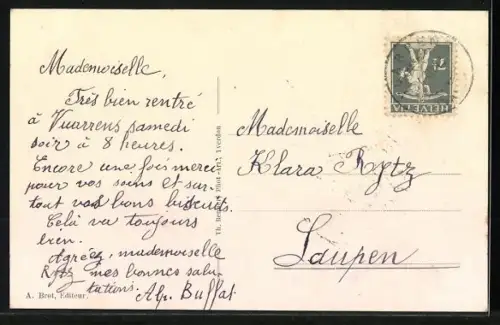 Mademoiselle,
Très bien rentré
à Vuarrens samedi
soir à 8 heures.
Encore une fois merci
pour vos soins et sur-
tout vos bons biscuits.
Celà va toujours
bien.
Agréez, mademoiselle
Rytz mes bonnes salu-
tations.
Alp. Buffat
A. Brot, Editeur.
Yverdon
HELVETIA
7½
Mademoiselle
Klara Rytz
Laupen